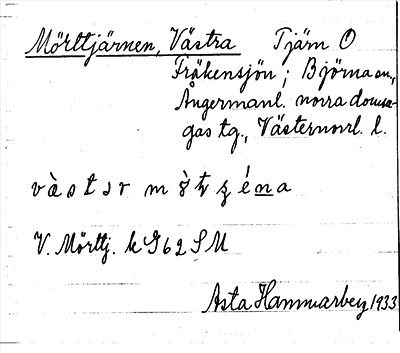 Mörttjärnen, Västra Tjärn O
Fräkensjön; Björna sn,
Ångermanl. norra domsa-
gas tg., Västernorrl. l.
V. Mörttj. k G62 SM
Asta Hammarberg 1933